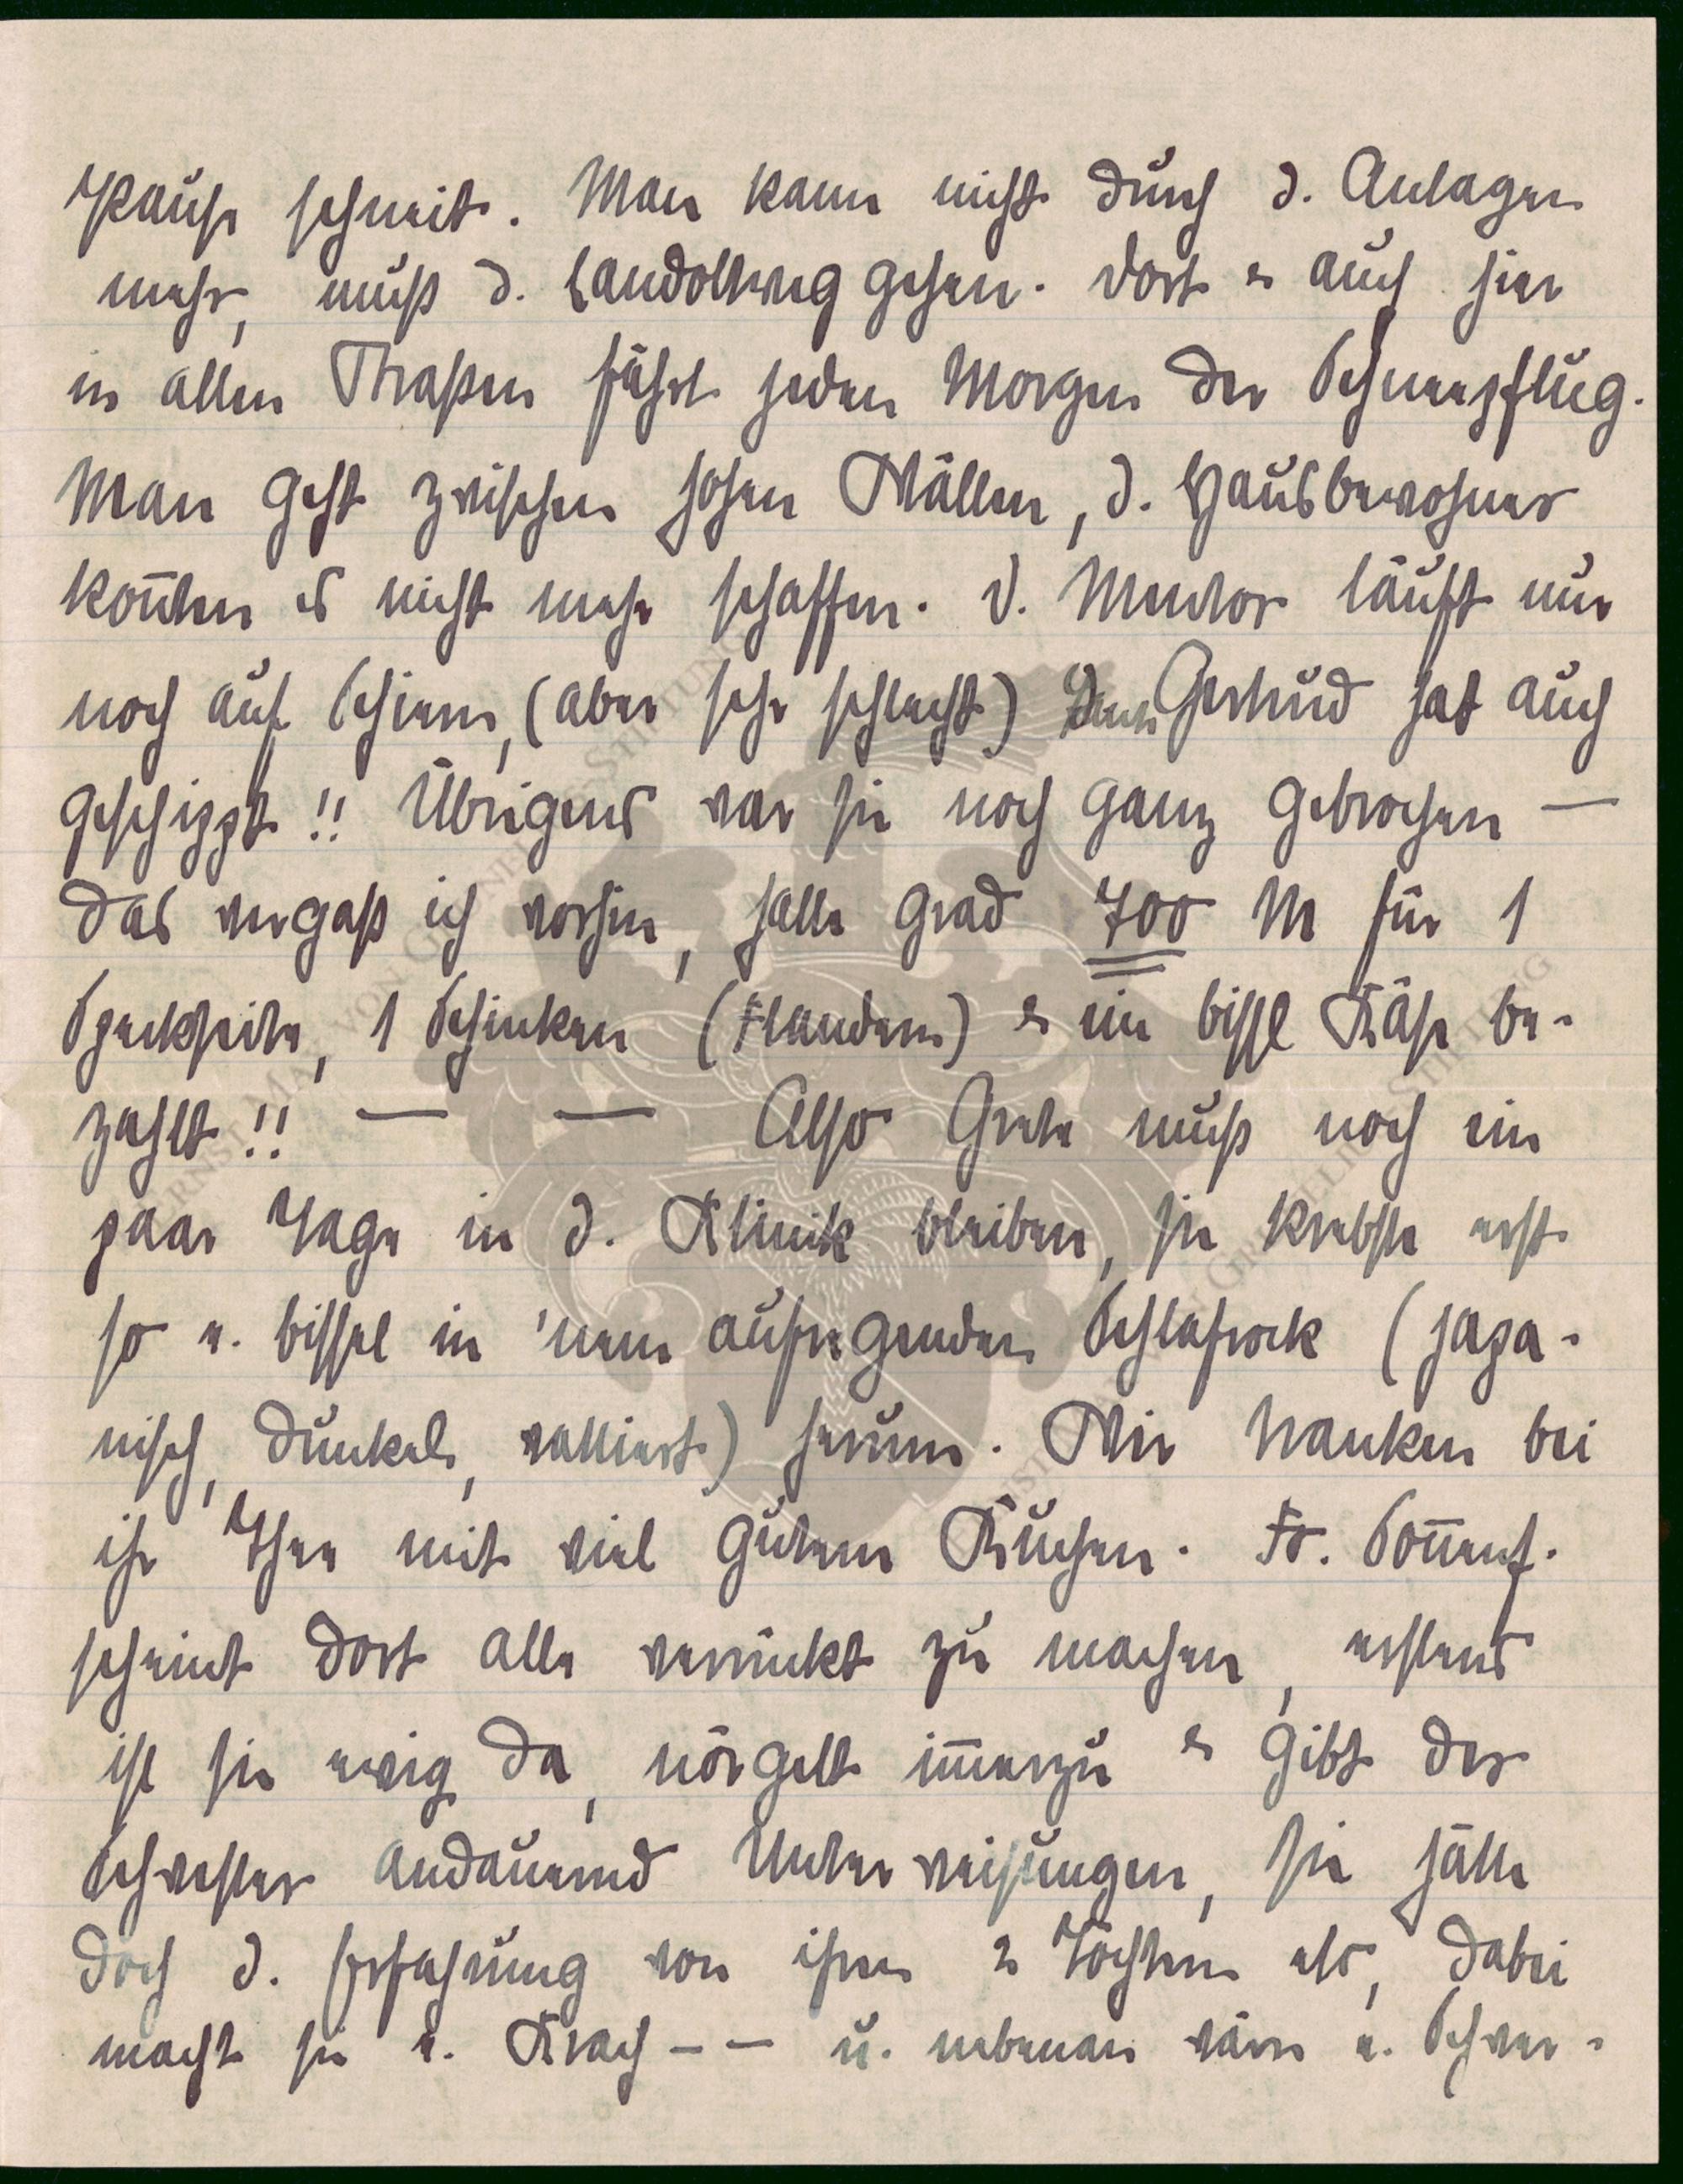 Pause schneit. Man kann nicht durch d. Anlagen
mehr, muß d. Landoltweg gehen. Dort & auch hier
in allen Straßen fährt jeden Morgen der Schneepflug.
Man geht zwischen hohen Wällen, d. Hausbewohner
kon̅ten es nicht mehr schaffen. D. Mentor läuft nur
noch auf Schiern, (aber sehr schlecht) Gertrud hat auch
geschippt!! Übrigens war sie noch ganz gebrochen —
das vergaß ich vorhin, hatte grad 700 M für 1
Speckseite, 1 Schinken (Flandern) & ein bissl Käse be-
zahlt!! — — Also Grete muß noch ein
paar Tage in d. Klinik bleiben, sie krebste erst
so e. bissel in 'nem aufregenden Schlafrock (japa-
nisch, dunkel, wattiert) herum. Wir tranken bei
ihr Thee mit viel gutem Kuchen. Fr. Son̅enf.
scheint dort alle verrückt zu machen, erstens
ist sie ewig da, nörgelt im̅erzu & gibt der
Schwester andauernd Unterweisungen, sie hätte
doch d. Erfahrung von ihren 2 Töchtern etc, dabei
macht sie e. Krach – – u. nebenan wäre e. Schwer-
MARX VON GRELLING STIFTUNG